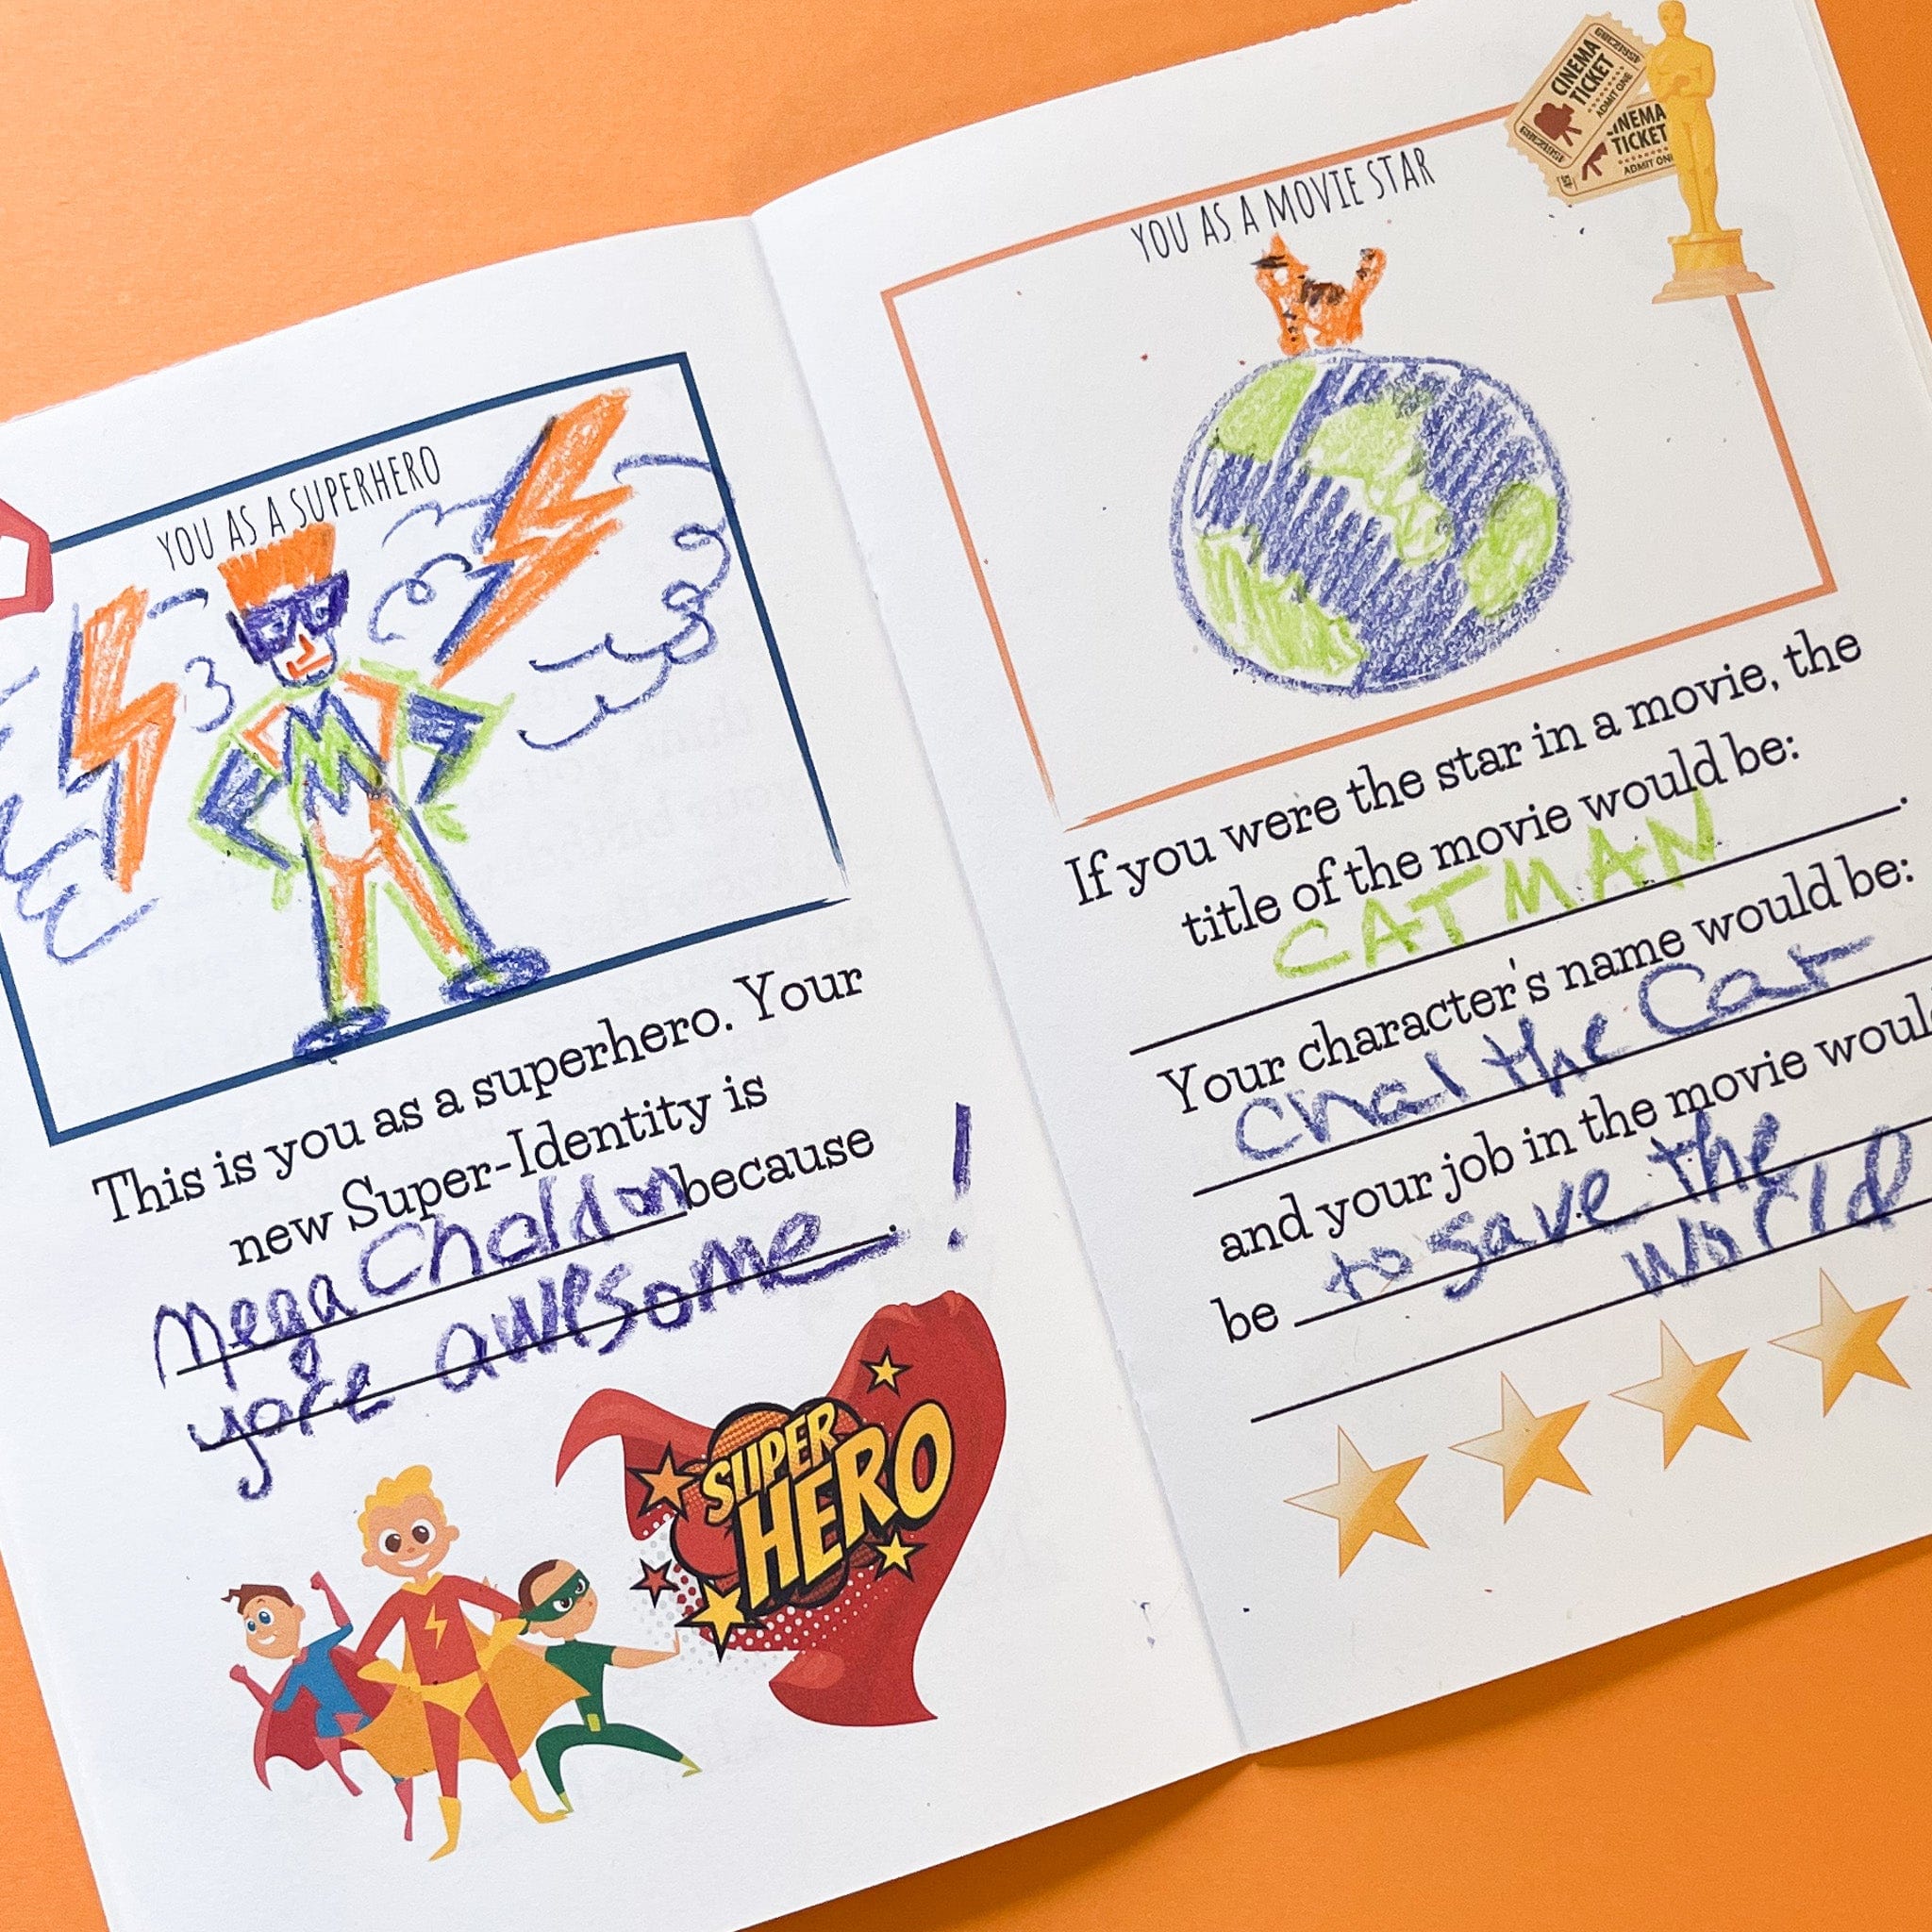 YOU AS A SUPERHERO
M
This is you as a superhero. Your
new Super-Identity is
Mega Chaldon because
yore awesome . !
SUPER
HERO
CINEMA
TICKET
ADMIT ONE
CINEMA
TICKET
ADMIT ONE
YOU AS A MOVIE STAR
If you were the star in a movie, the
title of the movie would be:
CATMAN .
Your character's name would be:
Chal the Cat
and your job in the movie would
be to save the
world